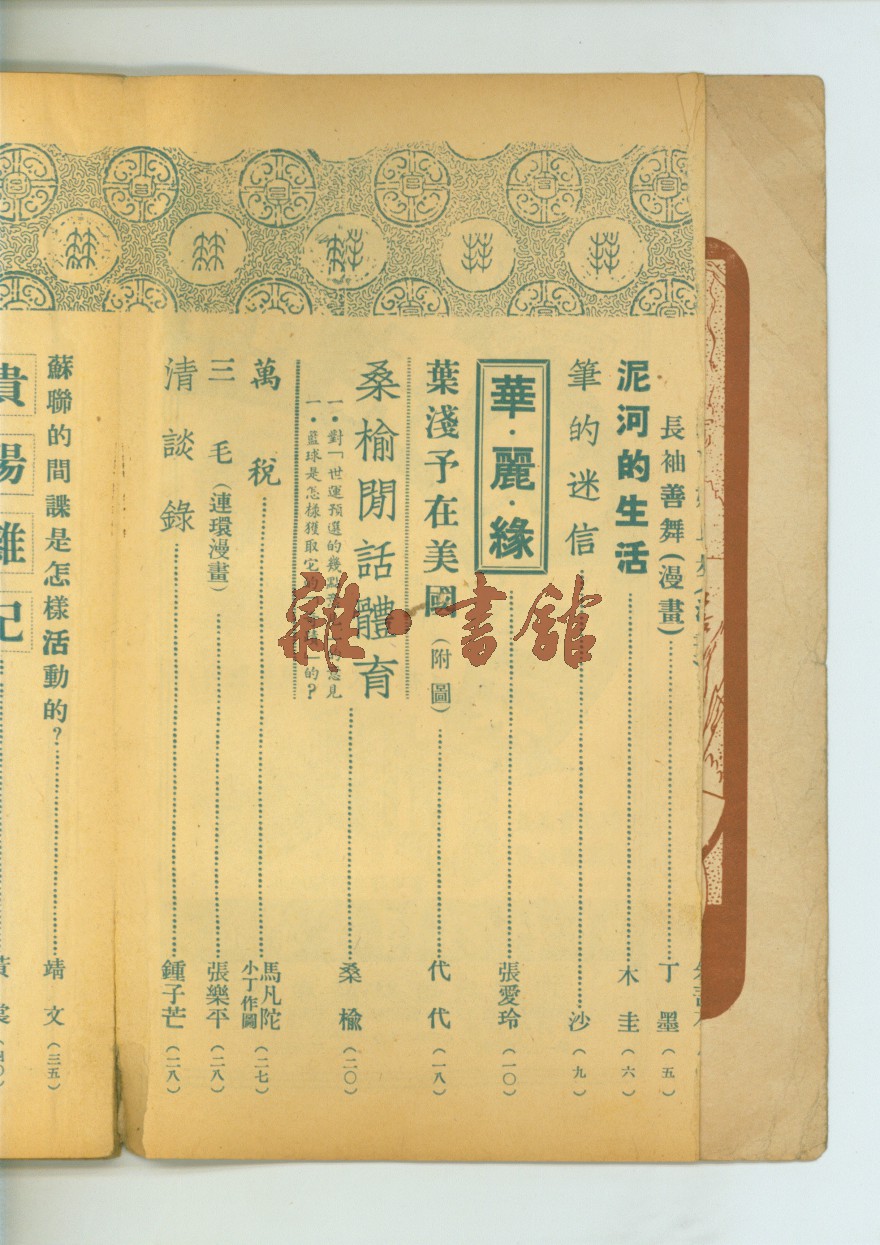 長袖善舞(漫畫)……丁墨(五)
泥河的生活……木圭(六)
筆的迷信……沙(九)
華·麗·緣……張愛玲(一〇)
葉淺予在美國(附圖)……代代(一八)
桑榆閒話體育……桑榆(二〇)
一·對「世運預選的幾點
意見
一·籃球是怎樣獲取它的
」的?
萬稅……馬凡陀 小丁作圖(二七)
三毛(連環漫畫)……張樂平(二八)
清談錄……鍾子芒(二八)
蘇聯的間諜是怎樣活動的?……靖文(三五)
貴陽雜記……黃裳(四〇)
雜·書館